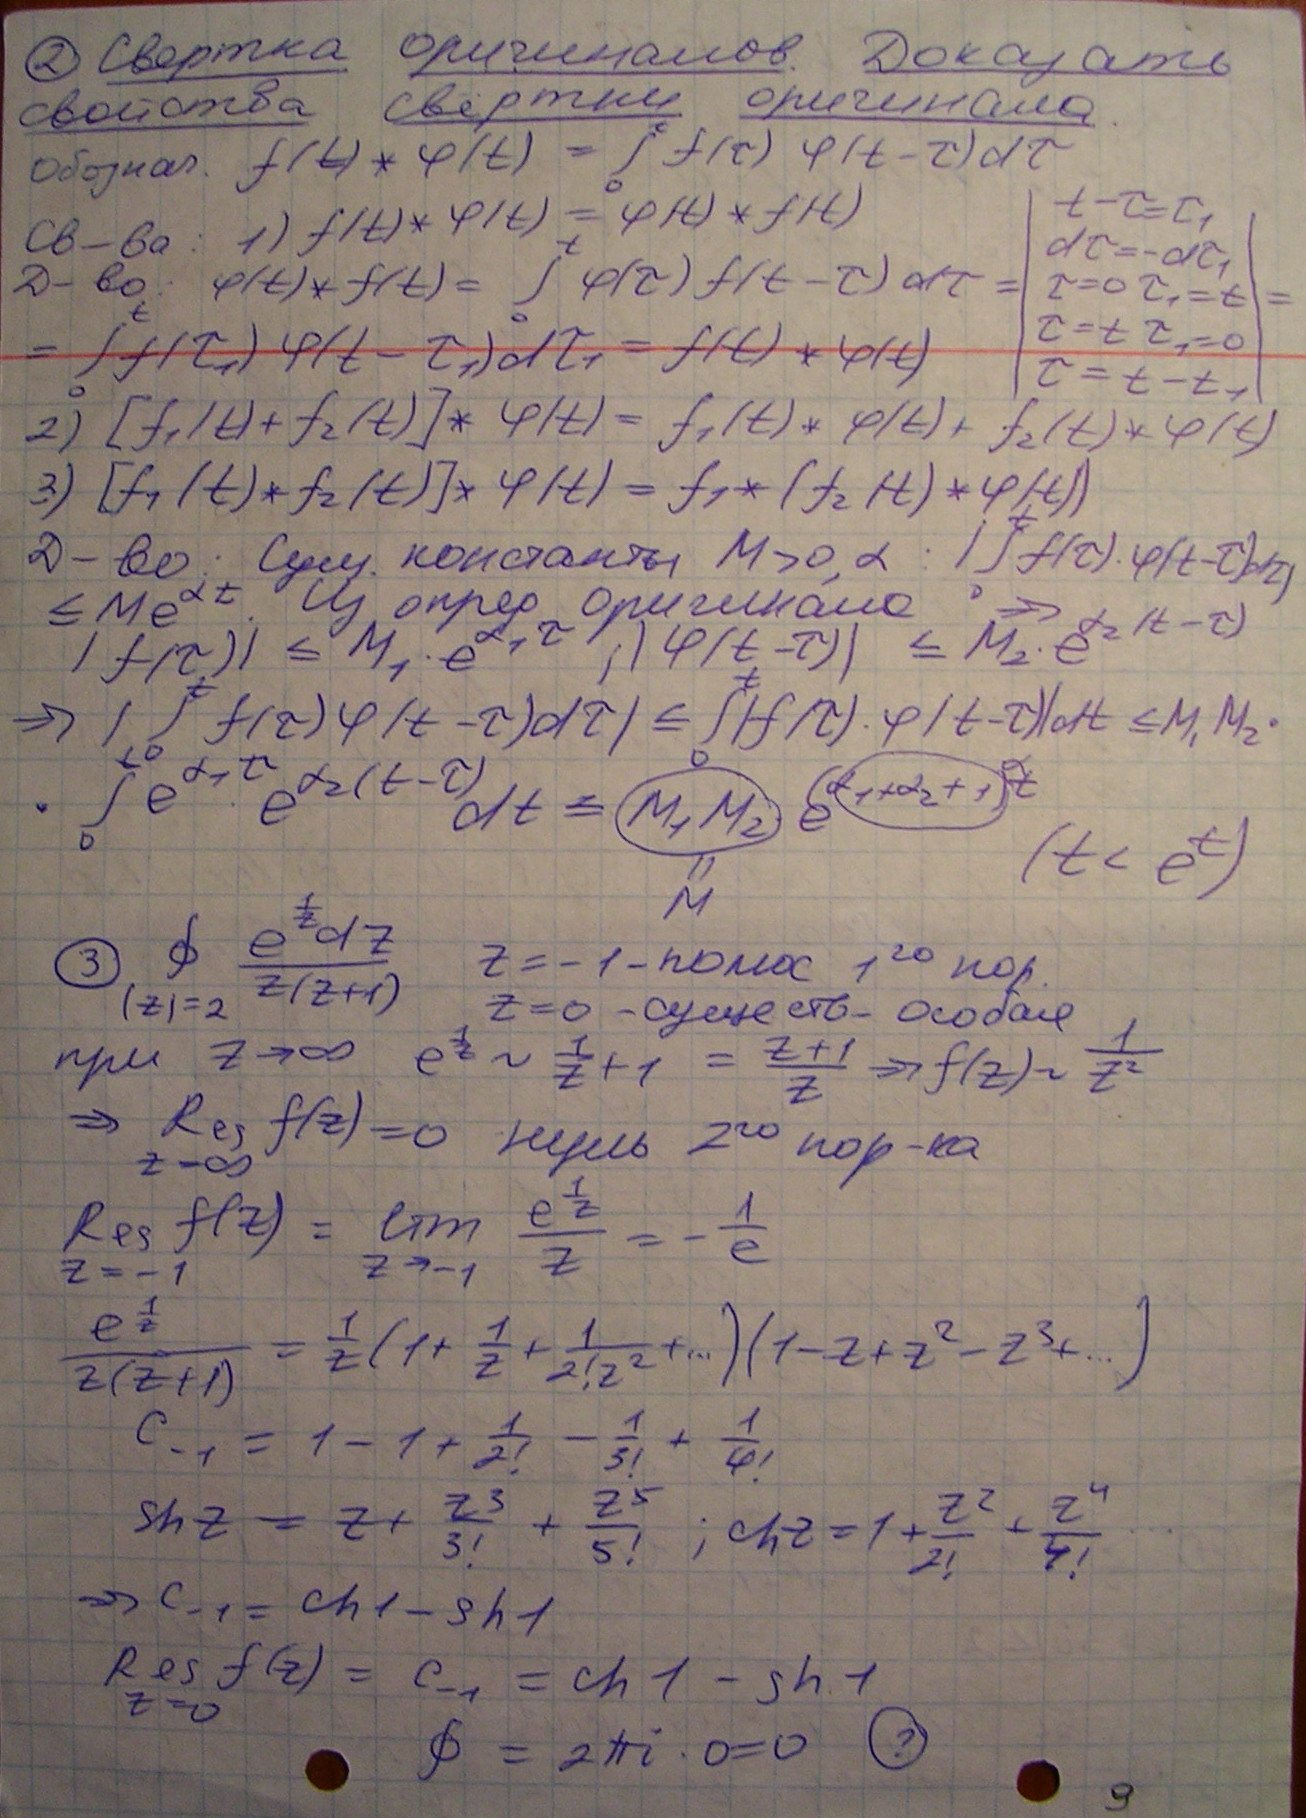 ② Свертка оригиналов. Доказать
свойства свёртки оригинала.
Обознач. f(t) * φ(t) = ∫₀ᵗ f(τ) φ(t-τ)dτ
Св-ва: 1) f(t) * φ(t) = φ(t) * f(t)
Д-во: φ(t) * f(t) = ∫₀ᵗ φ(τ) f(t-τ)dτ = | t-τ=τ₁
dτ=-dτ₁
τ=0 τ₁=t
τ=t τ₁=0
τ=t-t₁ | =
= ∫₀ᵗ f(τ₁) φ(t-τ₁)dτ₁ = f(t) * φ(t)
2) [f₁(t)+f₂(t)] * φ(t) = f₁(t) * φ(t) + f₂(t) * φ(t)
3) [f₁(t) * f₂(t)] * φ(t) = f₁ * (f₂(t) * φ(t))
Д-во: Сущ. константы M>0, α : |∫₀ᵗ f(τ)·φ(t-τ)dτ|
≤ Me^{αt}. Из опред. оригинала ⇒
|f(τ)| ≤ M₁·e^{α₁τ} ; |φ(t-τ)| ≤ M₂·e^{α₂(t-τ)}
⇒ |∫₀ᵗ f(τ)φ(t-τ)dτ| ≤ ∫₀ᵗ |f(τ)·φ(t-τ)|dt ≤ M₁M₂·
· ∫₀ᵗ e^{α₁τ}·e^{α₂(t-τ)}dt ≤ M₁M₂ e^{(α₁+α₂+1)t}
(t < e^t)
"
M
③ ∮_{|z|=2} e^{1/z}dz / z(z+1) z=-1 - полюс 1го пор.
z=0 - существ- особая
при z→∞ e^{1/z} ~ 1/z+1 = (z+1)/z ⇒ f(z) ~ 1/z²
⇒ Res_{z=∞} f(z)=0 нуль 2го пор-ка
Res_{z=-1} f(z) = lim_{z→-1} e^{1/z}/z = -1/e
e^{1/z}/z(z+1) = 1/z (1+1/z+1/2!z²+...)(1-z+z²-z³+...)
C₋₁ = 1-1+1/2! - 1/3! + 1/4!
sh z = z+z³/3! + z⁵/5! ; ch z = 1+z²/2! + z⁴/4! ...
⇒ C₋₁ = ch1-sh1
Res_{z=0} f(z) = C₋₁ = ch 1 - sh 1
∮ = 2πi·0=0 ?
9